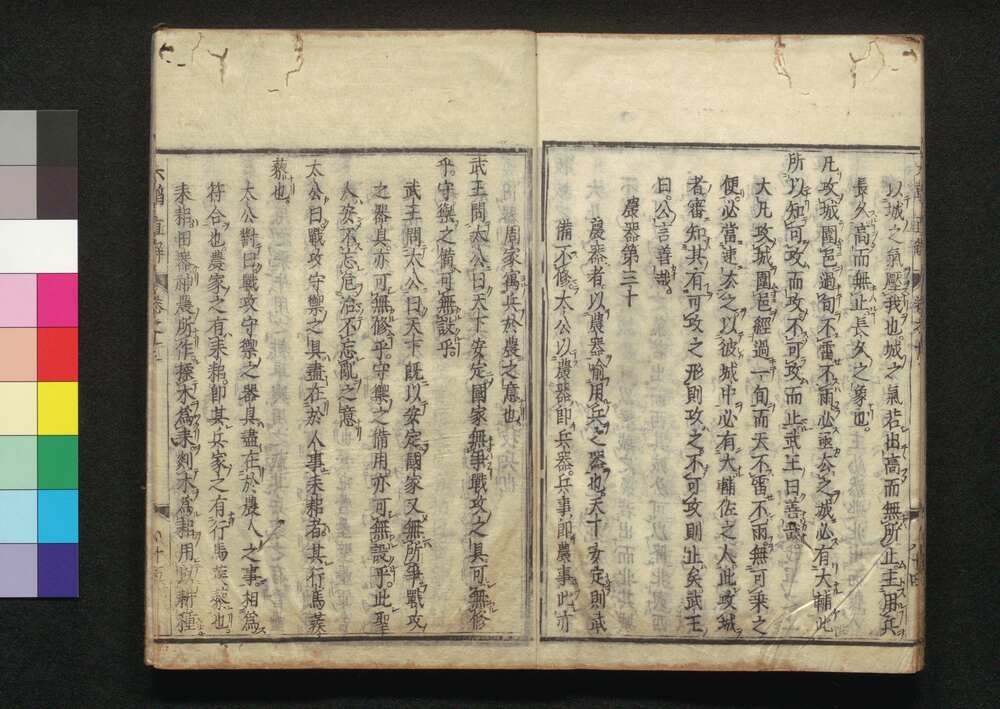 以城之氣壓我也城之氣若出高而無所止主用兵
長久高而無止長久之象也
凡攻城圍邑過旬不雷不雨必亟去之城必有大輔此
所以知可攻而攻不可攻而止武王曰善哉
大凡攻城圍邑經過一旬而天不雷不雨無可乗之
便必當速去之以彼城中必有大輔佐之人此攻城
者審知其有可攻之形則攻之不可攻則止矣武王
曰公言善哉
農器第三十
農器者以農器喻用兵之器也天下安定則武
備不修太公以農器即兵器兵事即農事此亦
周家寓兵於農之意也
武王問太公曰天下安定國家無事戰攻之具可無修
乎守禦之備可無設乎
武王問太公曰天下既以安定國家又無所爭戰攻
之器具亦可無修乎守禦之備用亦可無設乎此聖
人安不忘危治不忘亂之意
太公曰戰攻守禦之具盡在於人事耒耜者其行馬蒺
藜也
太公對曰戰攻守禦之器具盡在於農人之事相為
符合也農家之有耒耜即其兵家之有行馬蒺藜也
耒耜田器神農所作揉木為耒剡木為耜用以耕種
六韜直解